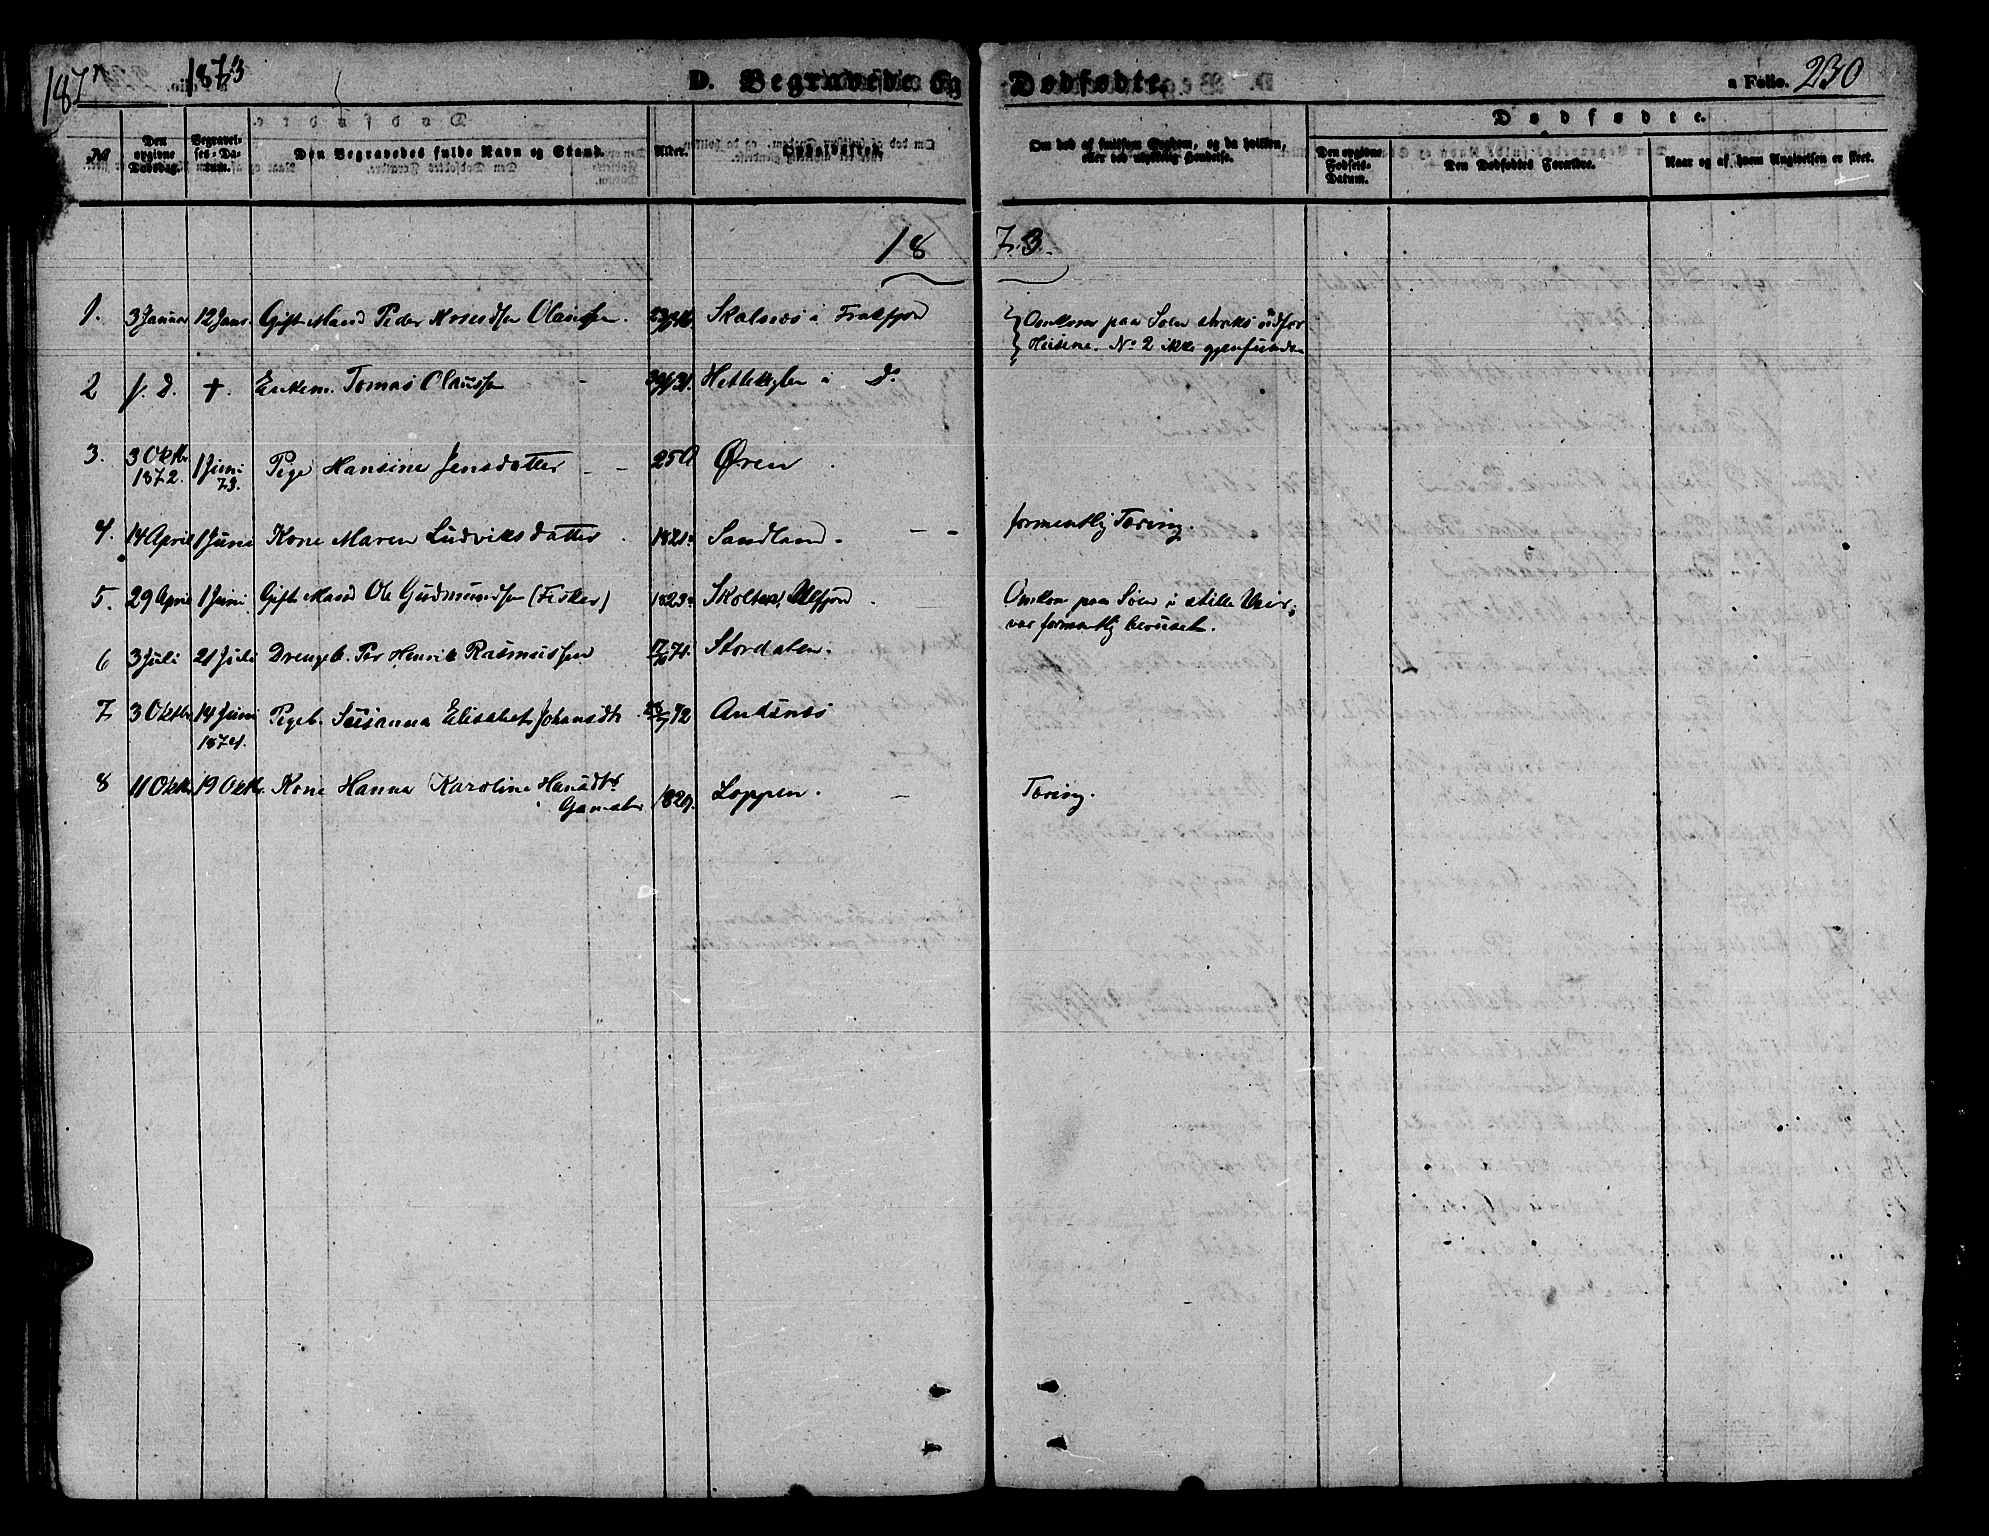 1873
D. Begravede og Dødfødte.
Folio. 230
Dødfødte.
No
Den opgivne Dødsdag.
Begravelses-Datum.
Den Begravedes fulde Navn og Stand.
Alder.
Om død af smitsom Sygdom, og da hvilken, eller ved ulykkelig Hendelse.
Den opgivne Fødsels-Datum.
Den Dødfødtes Forældre.
Naar og af hvem Angivelsen er skeet.
1873.
1. 3 Januar 12 Janr. Gift Mand Peder Olaussen. Skalnes i Frakfjord Omkom paa Søen straks udfor
Heisene. No 2 ikke gjenfunden
2 s. D. +. Enkem. Tomas Olaussen i Do
3. 3 Oktbr 1 Juni Pige Hansine Jensdatter - - 25 A Øren
1872. 73.
4. 14 April 1 Juni Kone Maren Ludviksdatter. 1821. Sandland. - - formentlig Tæring.
5. 29 April 1 Juni Gift Mand Ole Gudmundsen (Fisker) 1823. Ulfjord. Omkom paa Søen i stille Veir;
var formentlig beruset.
6 3 Juli 21 Juli Drengeb. Per Henrik Rasmussen 71. Stordalen.
7 3 Oktbr 14 Juni Pigeb. Susanna Elisabet Johansdtr. 72 Andsnes
1874.
8 11 Oktbr 19 Oktbr. Kone Hanna Karoline Hansdtr 1829. Loppen. - Tæring.